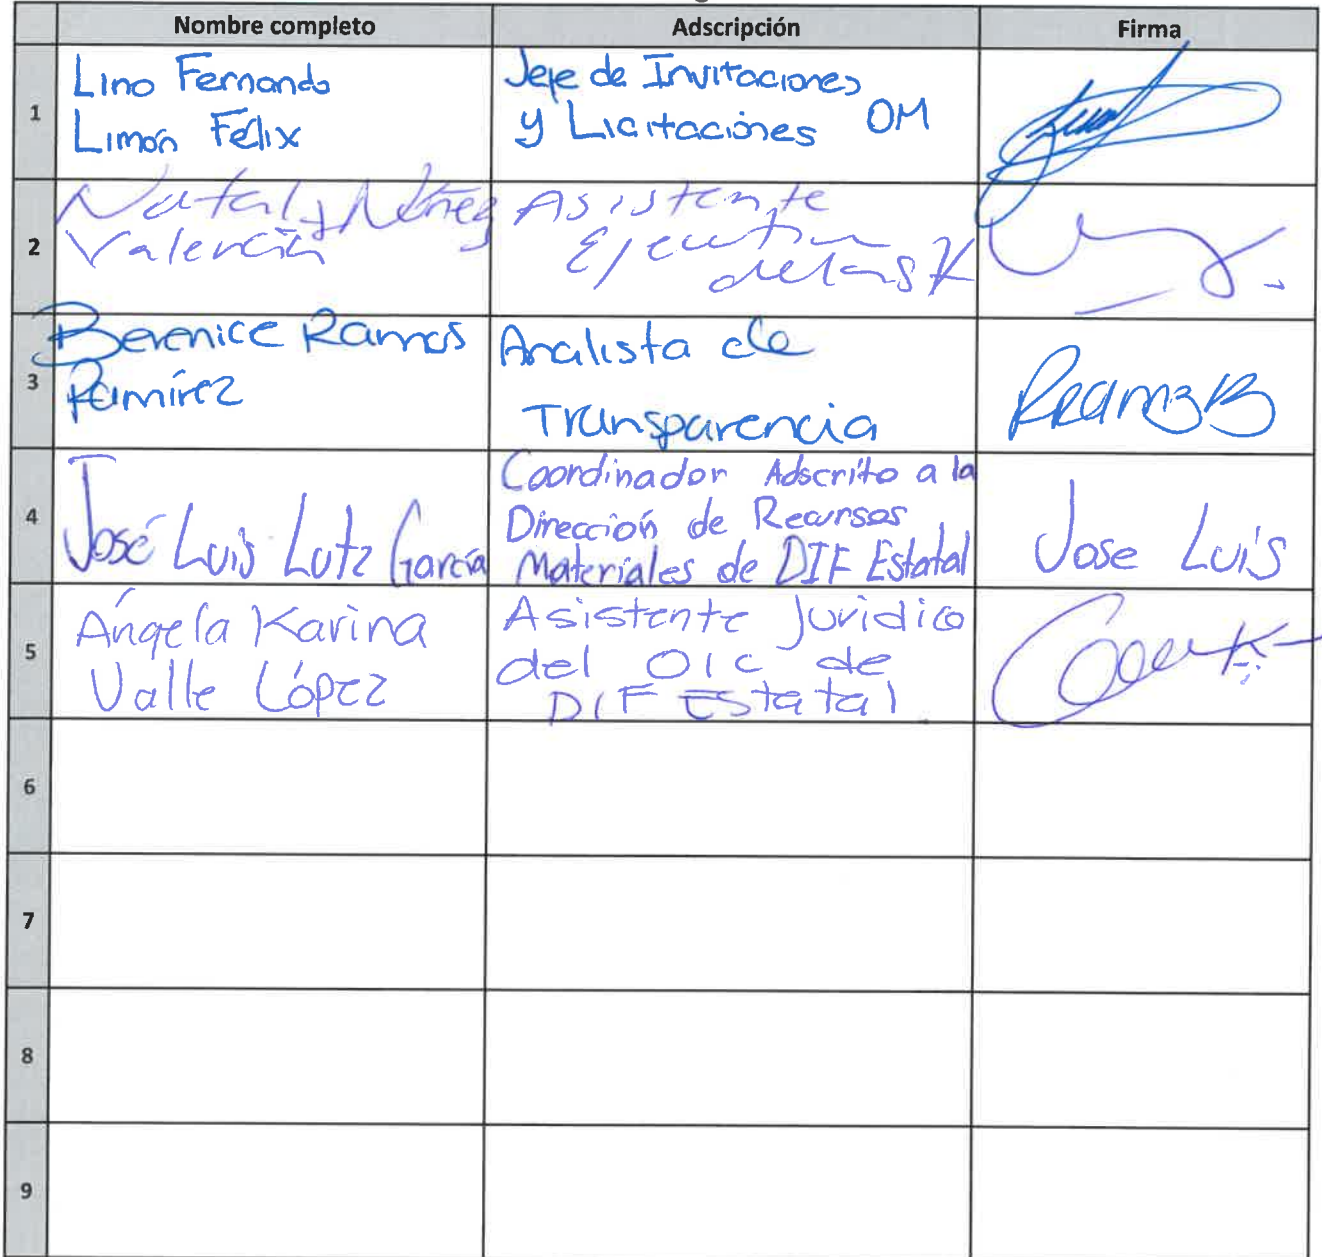 Nombre completo Adscripción Firma
1
Lino Fernando
Limón Félix
Jefe de Invitaciones
y Licitaciones OM
2
Nataly Núñez
Valencia
Asistente
Ejecutiva
3
Berenice Ramos
Ramírez
Analista de
Transparencia
4
José Luis Lutz García
Coordinador Adscrito a la
Dirección de Recursos
Materiales de DIF Estatal
Jose Luis
5
Ángela Karina
Valle López
Asistente Jurídico
del OIC de
DIF Estatal
6
7
8
9